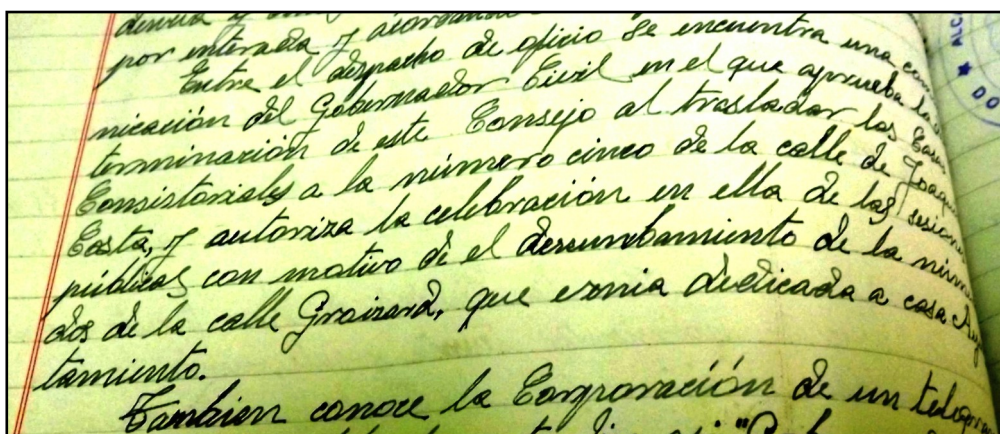 por enterada y
Entre el despacho de oficio se encuentra una co
nicación del Gobernador Civil en el que aprueba la
terminación de este Consejo al trasladar las Casas
Consistoriales a la número cinco de la calle de Joaqu
Costa, y autoriza la celebración en ella de las sesione
públicas con motivo de el derrumbamiento de la núme
dos de la calle Groizard, que venia dedicada a casa Ayu
tamiento.
Tambien conoce la Corporación de un telegra
ALC
DO